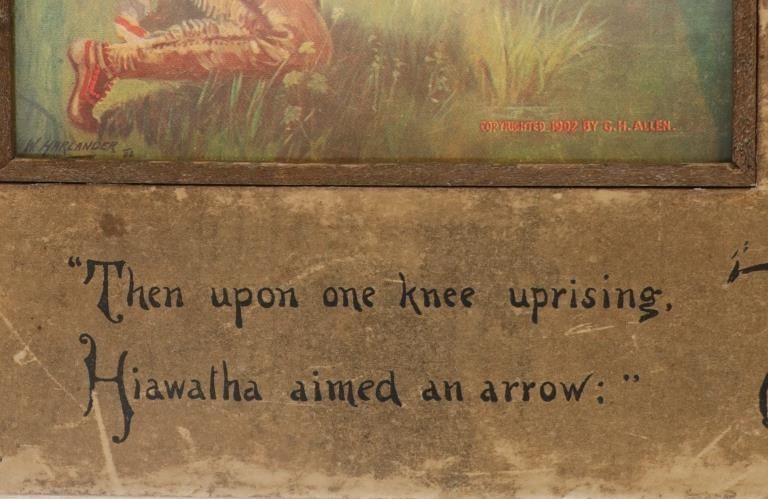 W. HARLANDER
COPYRIGHTED 1902 BY G. H. ALLEN.
"Then upon one knee uprising,
Hiawatha aimed an arrow: "